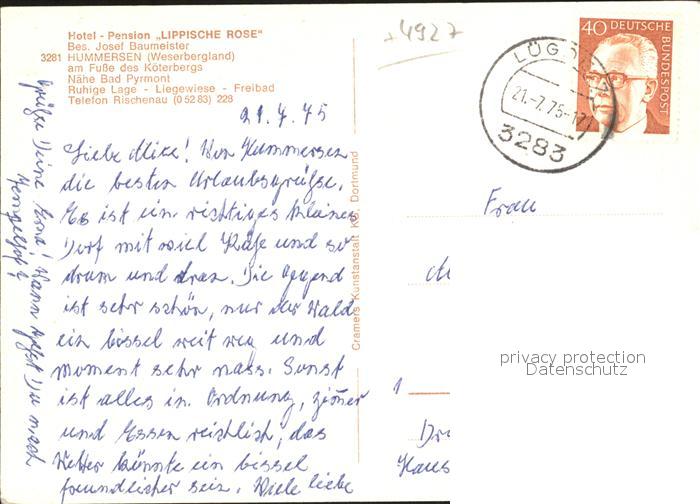 Hotel - Pension „LIPPISCHE ROSE"
Bes. Josef Baumeister
3281 HUMMERSEN (Weserbergland)
am Fuße des Köterbergs
Nähe Bad Pyrmont
Ruhige Lage - Liegewiese - Freibad
Telefon Rischenau (0 52 83) 228
4927
40 DEUTSCHE BUNDESPOST
LÜGDE
21.-7.75-17
3283
21.7.75
Liebe Mixe! Von Hummersen
die besten Urlaubsgrüße.
Es ist ein richtiges kleines
Dorf mit viel Kühe und so
drum und dran. Die Gegend
ist sehr schön, nur der Wald
ein bissel weit weg und
moment sehr nass. Sonst
ist alles in Ordnung, Zimmer
und Essen reichlich, das
Wetter könnte ein bissel
freundlicher sein. Viele liebe
Grüße Deine Erna! Wann fährst Du nach
Cramers Kunstanstalt KG. Dortmund
Frau
1
Haus
privacy protection
Datenschutz